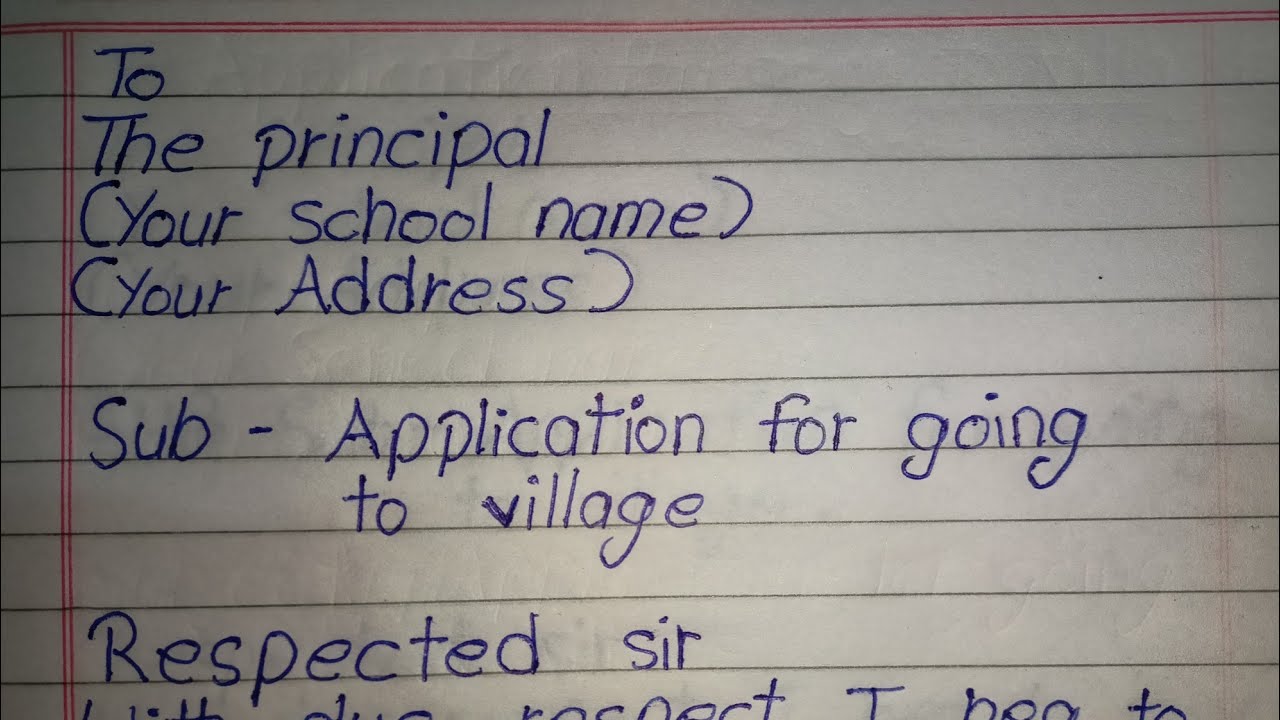 To
The principal
(Your school name)
(Your Address)
Sub - Application for going
to village
Respected sir
With due respect I beg to